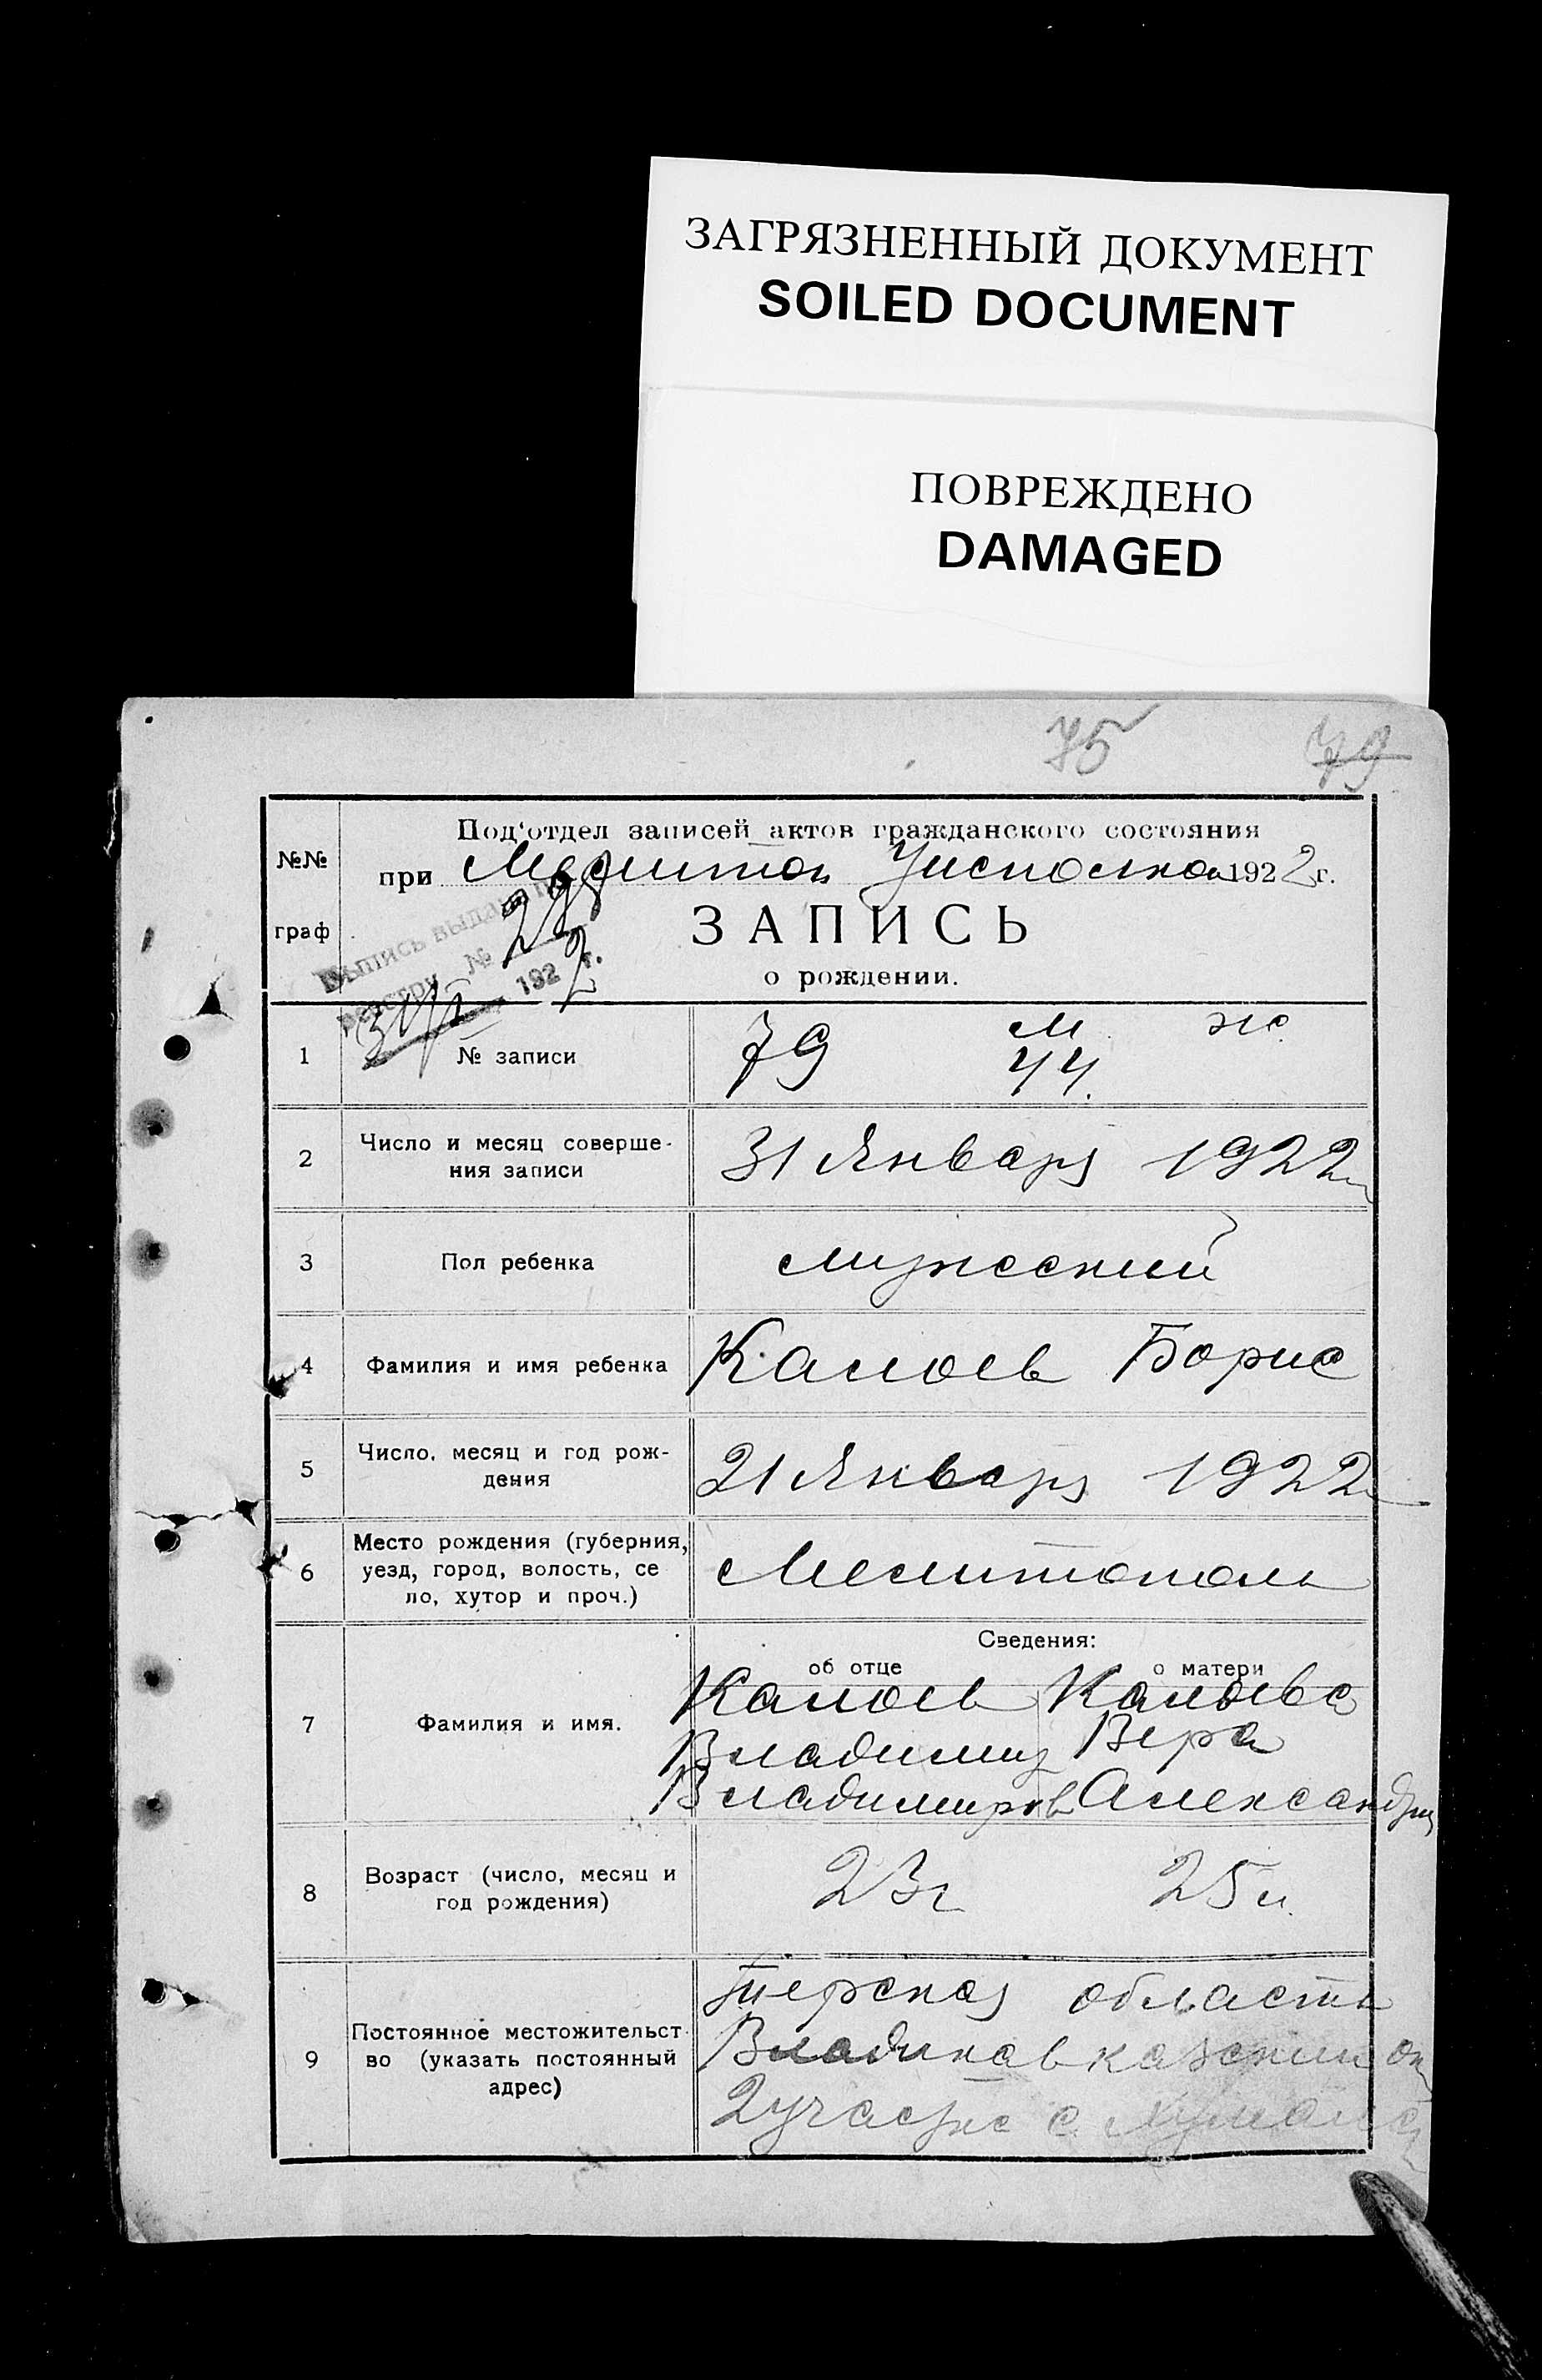 ЗАГРЯЗНЕННЫЙ ДОКУМЕНТ
SOILED DOCUMENT
ПОВРЕЖДЕНО
DAMAGED
75
79
№№
граф
Под'отдел записей актов гражданского состояния
при Мелитоп Уисполком 1922 г.
ЗАПИСЬ
о рождении.
Выпись выдана по
реестру № 298
1922 г.
м. ж.
1 № записи 79 44.
2 Число и месяц соверше-
ния записи 31 Января 1922
3 Пол ребенка мужеский
4 Фамилия и имя ребенка Калоев Борис
5 Число, месяц и год рож-
дения 21 Января 1922
6 Место рождения (губерния,
уезд, город, волость, се
ло, хутор и проч.) Мелитополь
Сведения:
об отце о матери
7 Фамилия и имя. Калоев Калоева
Владимир Вера
Владимиров Александр
8 Возраст (число, месяц и
год рождения) 23 г 25 л.
9 Постоянное местожительст-
во (указать постоянный
адрес)
Терская область
Владикавказский ок
2 участке с.